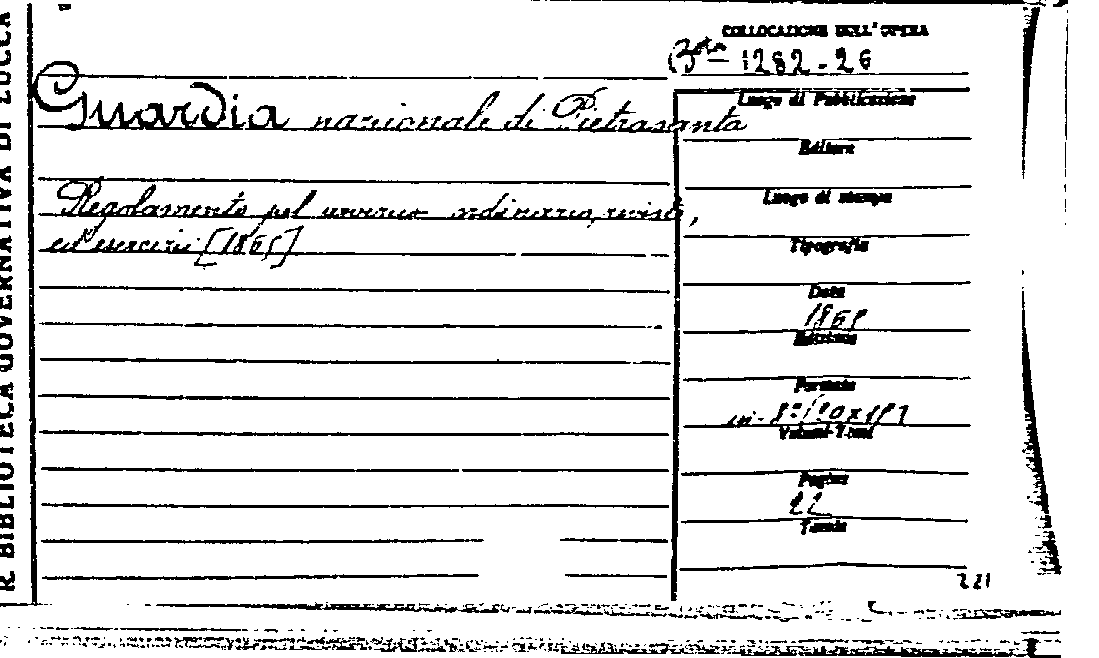 R. BIBLIOTECA GOVERNATIVA DI LUCCA
COLLOCAZIONE DELL'OPERA
Bta 1282-26
Guardia nazionale di Pietrasanta
Regolamento pel servizio ordinario, riviste,
ed esercizi [1865]
Luogo di Pubblicazione
Editore
Luogo di stampa
Tipografia
Data
1865
Edizione
Formato
in-8°
Volumi-Tomi
Pagine
22
Tavole
221